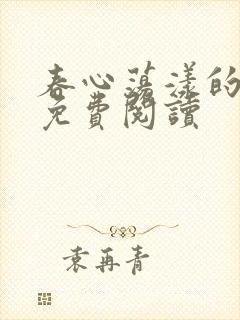 春心蕩漾的
免費閱讀
袁再青